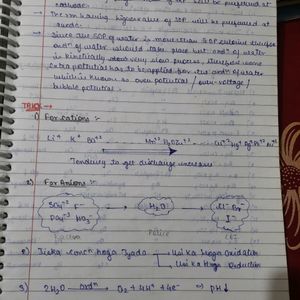 cathode.
→ The one having higher value of SOP will be preferred at
anode.
→ Since the SOP of water is more than SOP of chlorine therefore
oxdn of water should take place but oxdn of water
is kinetically slow very slow process, therefore some
extra potential has to be applied for the oxdn of water
which is known as over potential / over-voltage /
bubble potential.
TRICK →
1) For cations :-
Li+ K+ Ba+2
Tendency to get discharge increase
2) For Anions :-
SO4-2 F-
PO4-3 NO3-
H2O
Cl- Br-
I-
Police
2) Jiska concn hoga Jyada → Usi ka Hoga Oxidation
Usi Ka Hoga Reduction
3) 2H2O oxdn → O2 + 4H+ + 4e- ⇒ pH↓